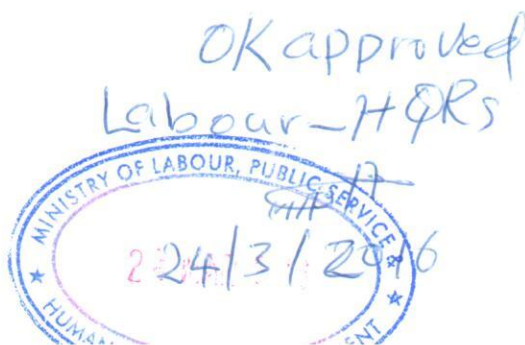 OK approved
Labour-HQRs
MINISTRY OF LABOUR, PUBLIC SERVICE &
24/3/2016
HUMAN